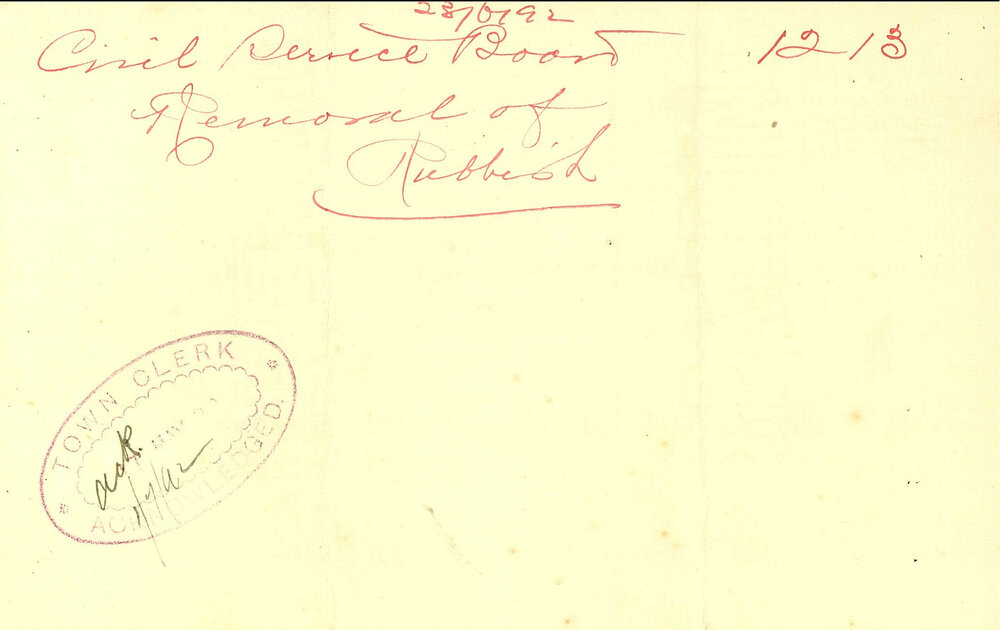 28/6/92
Civil Service Board 1213
Removal of
Rubbish
TOWN CLERK
ack.
1/7/92
ACKNOWLEDGED.